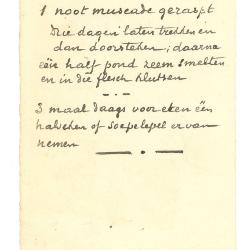 1 noot muscade geraspt
Die dagen laten trekken en
dan doorsteken; daarna
eën half pond zeem smelten
en in die flesch klutsen
3 maal daags voor eten eën
halschen of soepelepel er van
nemen